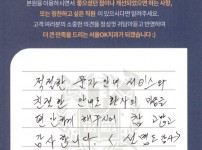 본원을 이용하시면서 좋으셨던 점이나 개선되었으면 하는 사항,
또는 칭찬하고 싶은 직원이 있으시다면 알려주세요.
고객 여러분의 소중한 의견을 정성껏 귀담아듣고 반영하여
더 큰 만족을 드리는 서울OK치과가 되겠습니다 :)
적절한 문자안내 서비스와
친절한 안내로 환자의 마음을
편안하게 해주시어 참 고맙고
감사합니다.